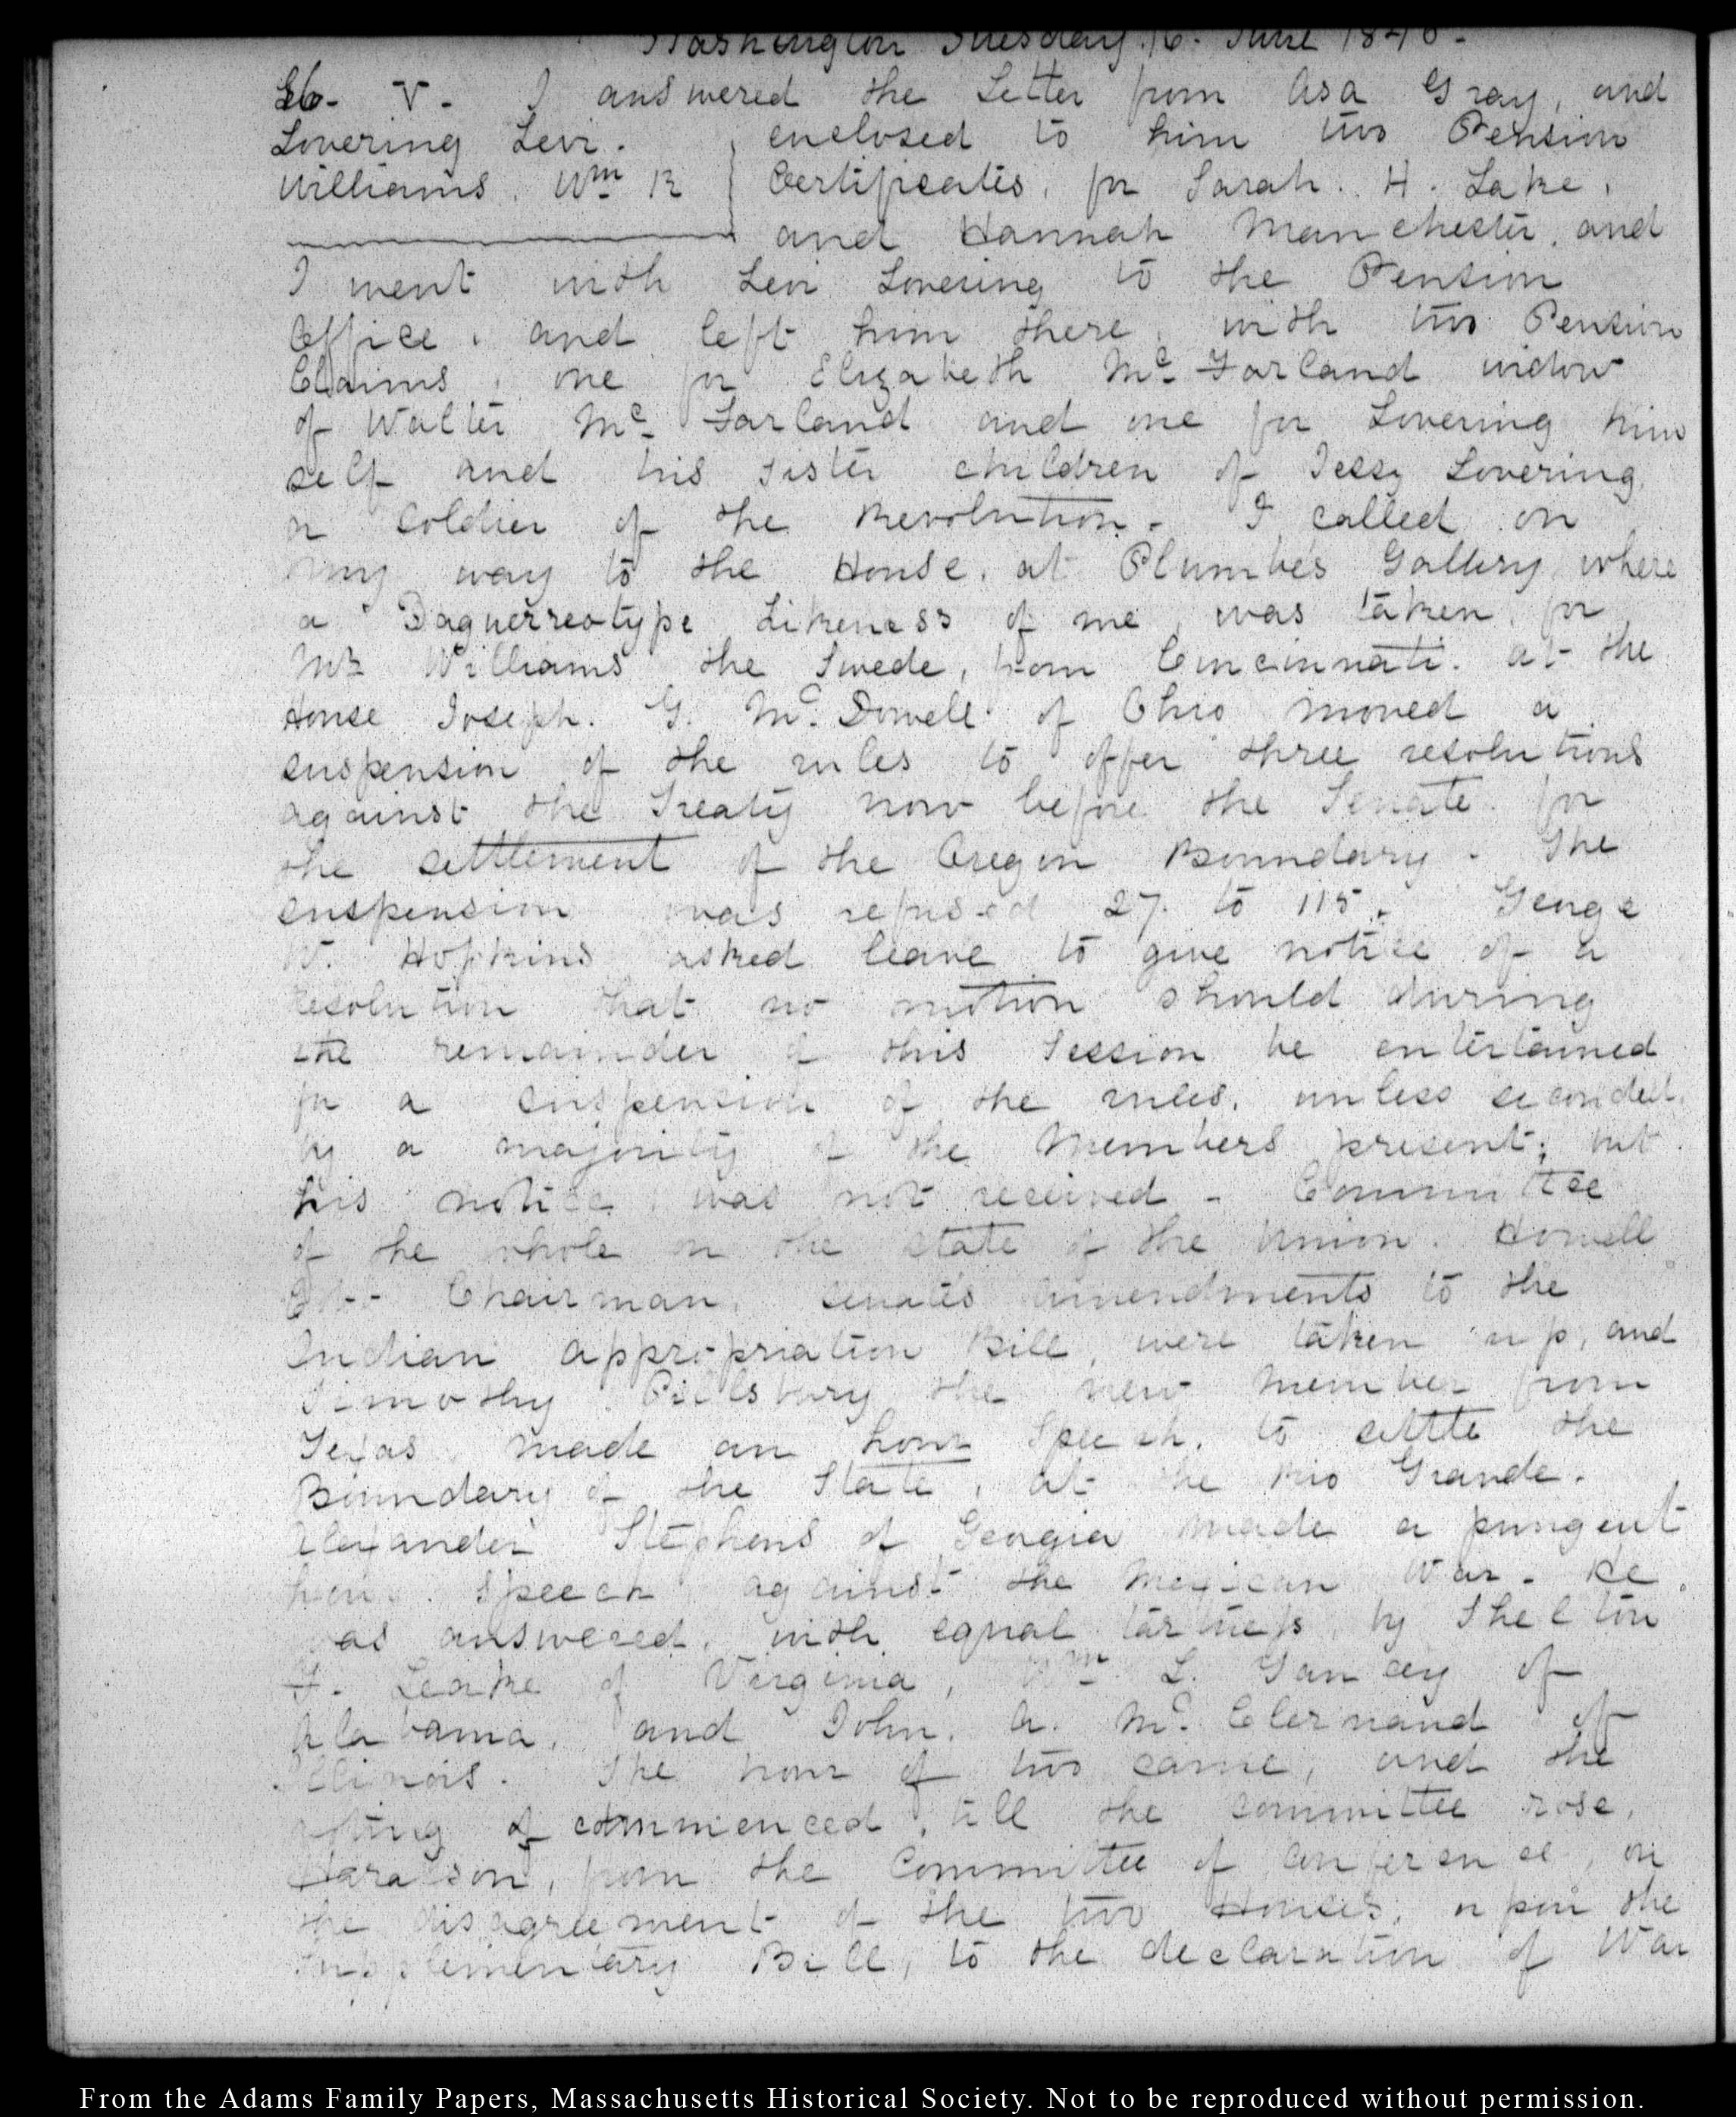 Washington Tuesday. 16. June 1846-
16- V- I answered the Letter from Asa Gray, and
Lovering Levi. enclosed to him two Pension
Williams. Wm R Certificates, for Sarah. H. Lake,
and Hannah Manchester, and
I went with Levi Lovering to the Pension
Office, and left him there, with two Pension
Claims, one for Elizabeth Mc. Farland widow
of Walter Mc. Farland and one for Lovering him
self and his sister children of Jessy Lovering
a soldier of the Revolution- I called on
my way to the House, at Plumbe's Gallery where
a Daguerreotype Likeness of me, was taken, for
Mr Williams the Swede, from Cincinnati. at the
House Joseph. G. Mc. Dowell of Ohio moved a
suspension of the rules to offer three resolutions
against the Treaty now before the Senate for
the settlement of the Oregon Boundary. The
suspension was refused 27. to 115. George
W. Hopkins asked leave to give notice of a
resolution that no motion should during
the remainder of this Session be entertained
for a suspension of the rules, unless seconded
by a majority of the Members present; but
his notice, was not received- Committee
of the whole on the state of the Union. Howell
Cobb Chairman. Senate's amendments to the
Indian appropriation Bill, were taken up, and
Timothy Pillsbury the new member from
Texas made an hour Speech, to settle the
Boundary of the State, at the Rio Grande.
Alexander Stephens of Georgia made a pungent
hour speech against the Mexican War- He
was answered, with equal tartness, by Shelton
F. Leake of Virginia, Wm. L. Yancey of
Alabama, and John. A. Mc. Clernand of
Illinois. The hour of two came, and the
of commenced, till the committee rose,
Haralson, from the Committee of conference, on
the disagreement of the two Houses, upon the
supplementary Bill, to the declaration of War
From the Adams Family Papers, Massachusetts Historical Society. Not to be reproduced without permission.